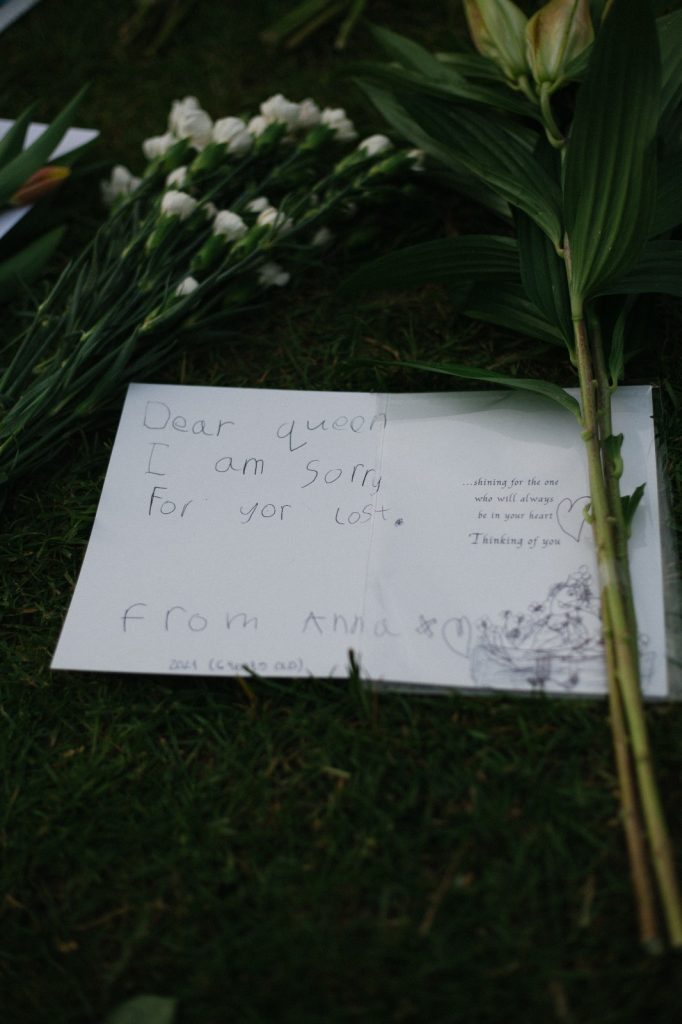 Dear queen
I am sorry
For yor Lost.
From Anna
2021 (6 years old)
...shining for the one
who will always
be in your heart
Thinking of you